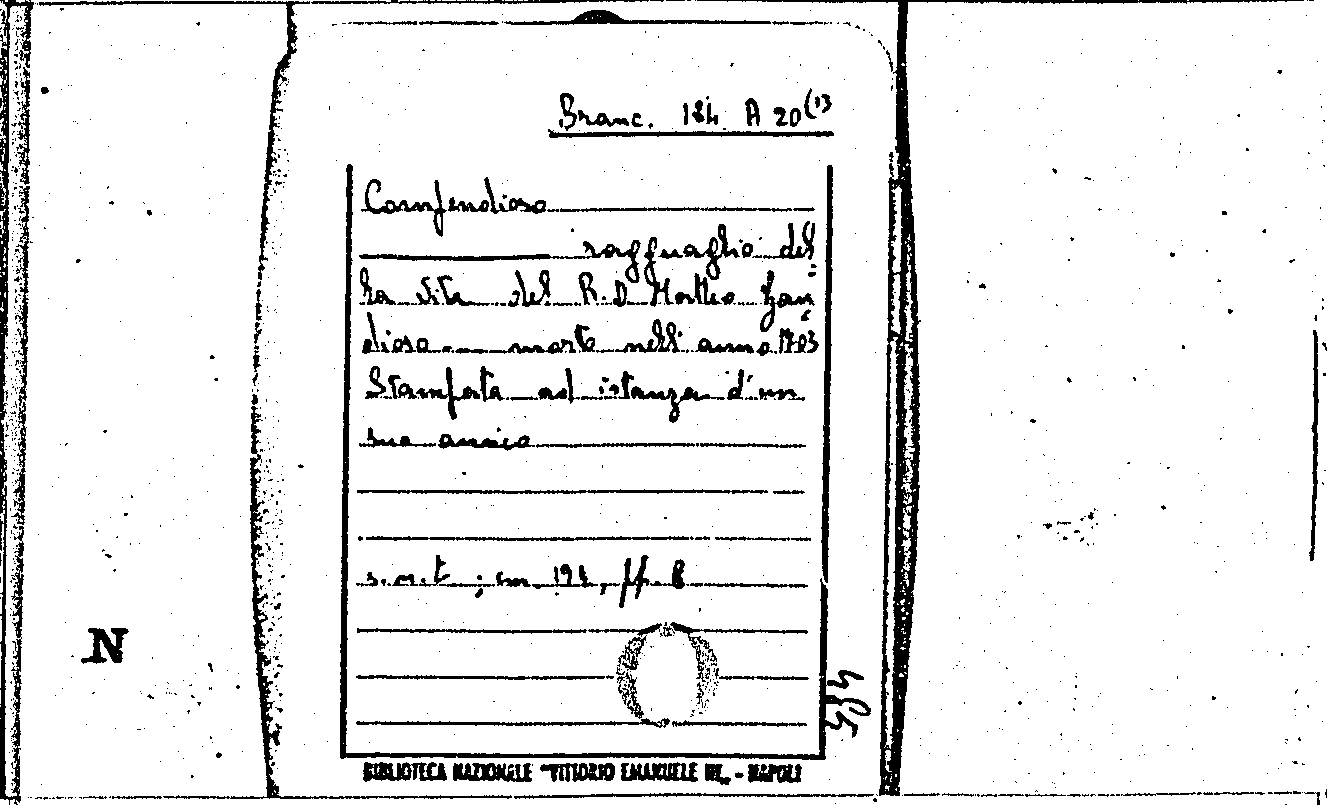 Branc. 184 A 20(13
Compendioso
ragguaglio del
la vita del R.D. Matteo Gan
dioso morto nell' anno 1703
Stampata ad istanza d'un
suo amico
s.n.t. ; cm. 19 , ff. 8
N
BIBLIOTECA NAZIONALE "VITTORIO EMANUELE III" - NAPOLI